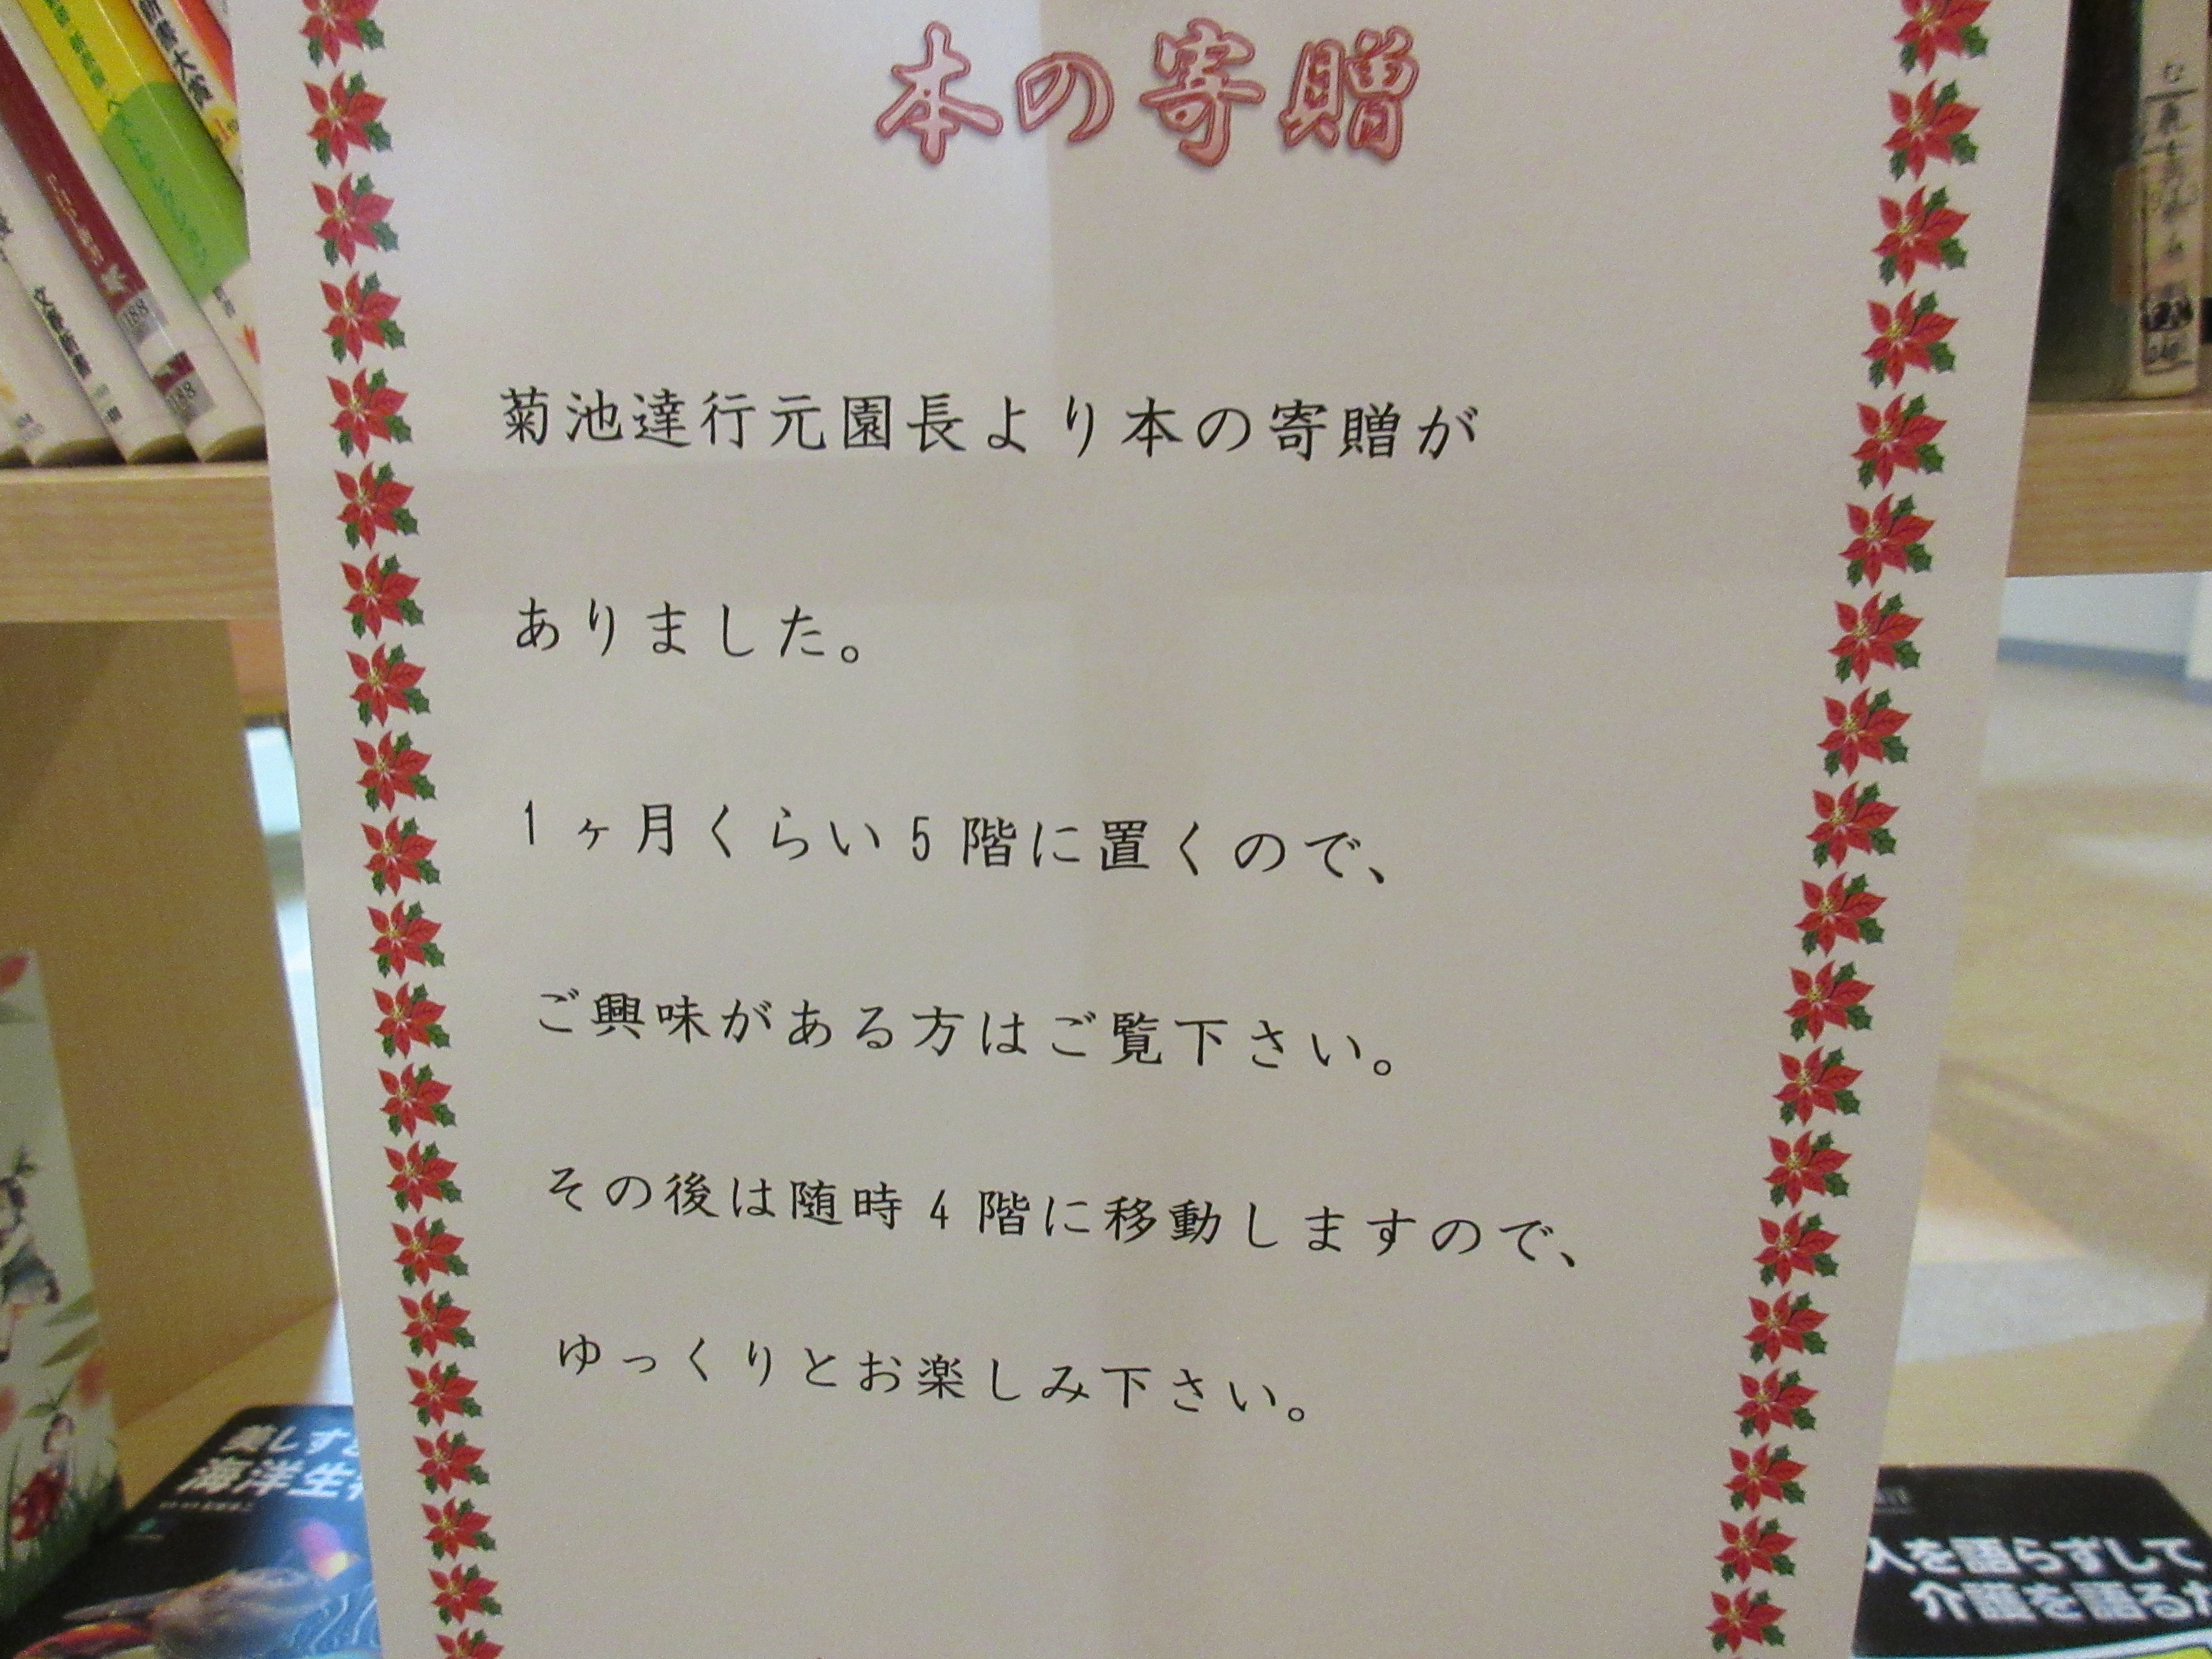 本の寄贈
菊池達行元園長より本の寄贈が
ありました。
1ヶ月くらい5階に置くので、
ご興味がある方はご覧下さい。
その後は随時4階に移動しますので、
ゆっくりとお楽しみ下さい。
文藝春秋
188
188
美しすぎ
海洋生
人を語らずして
介護を語るな